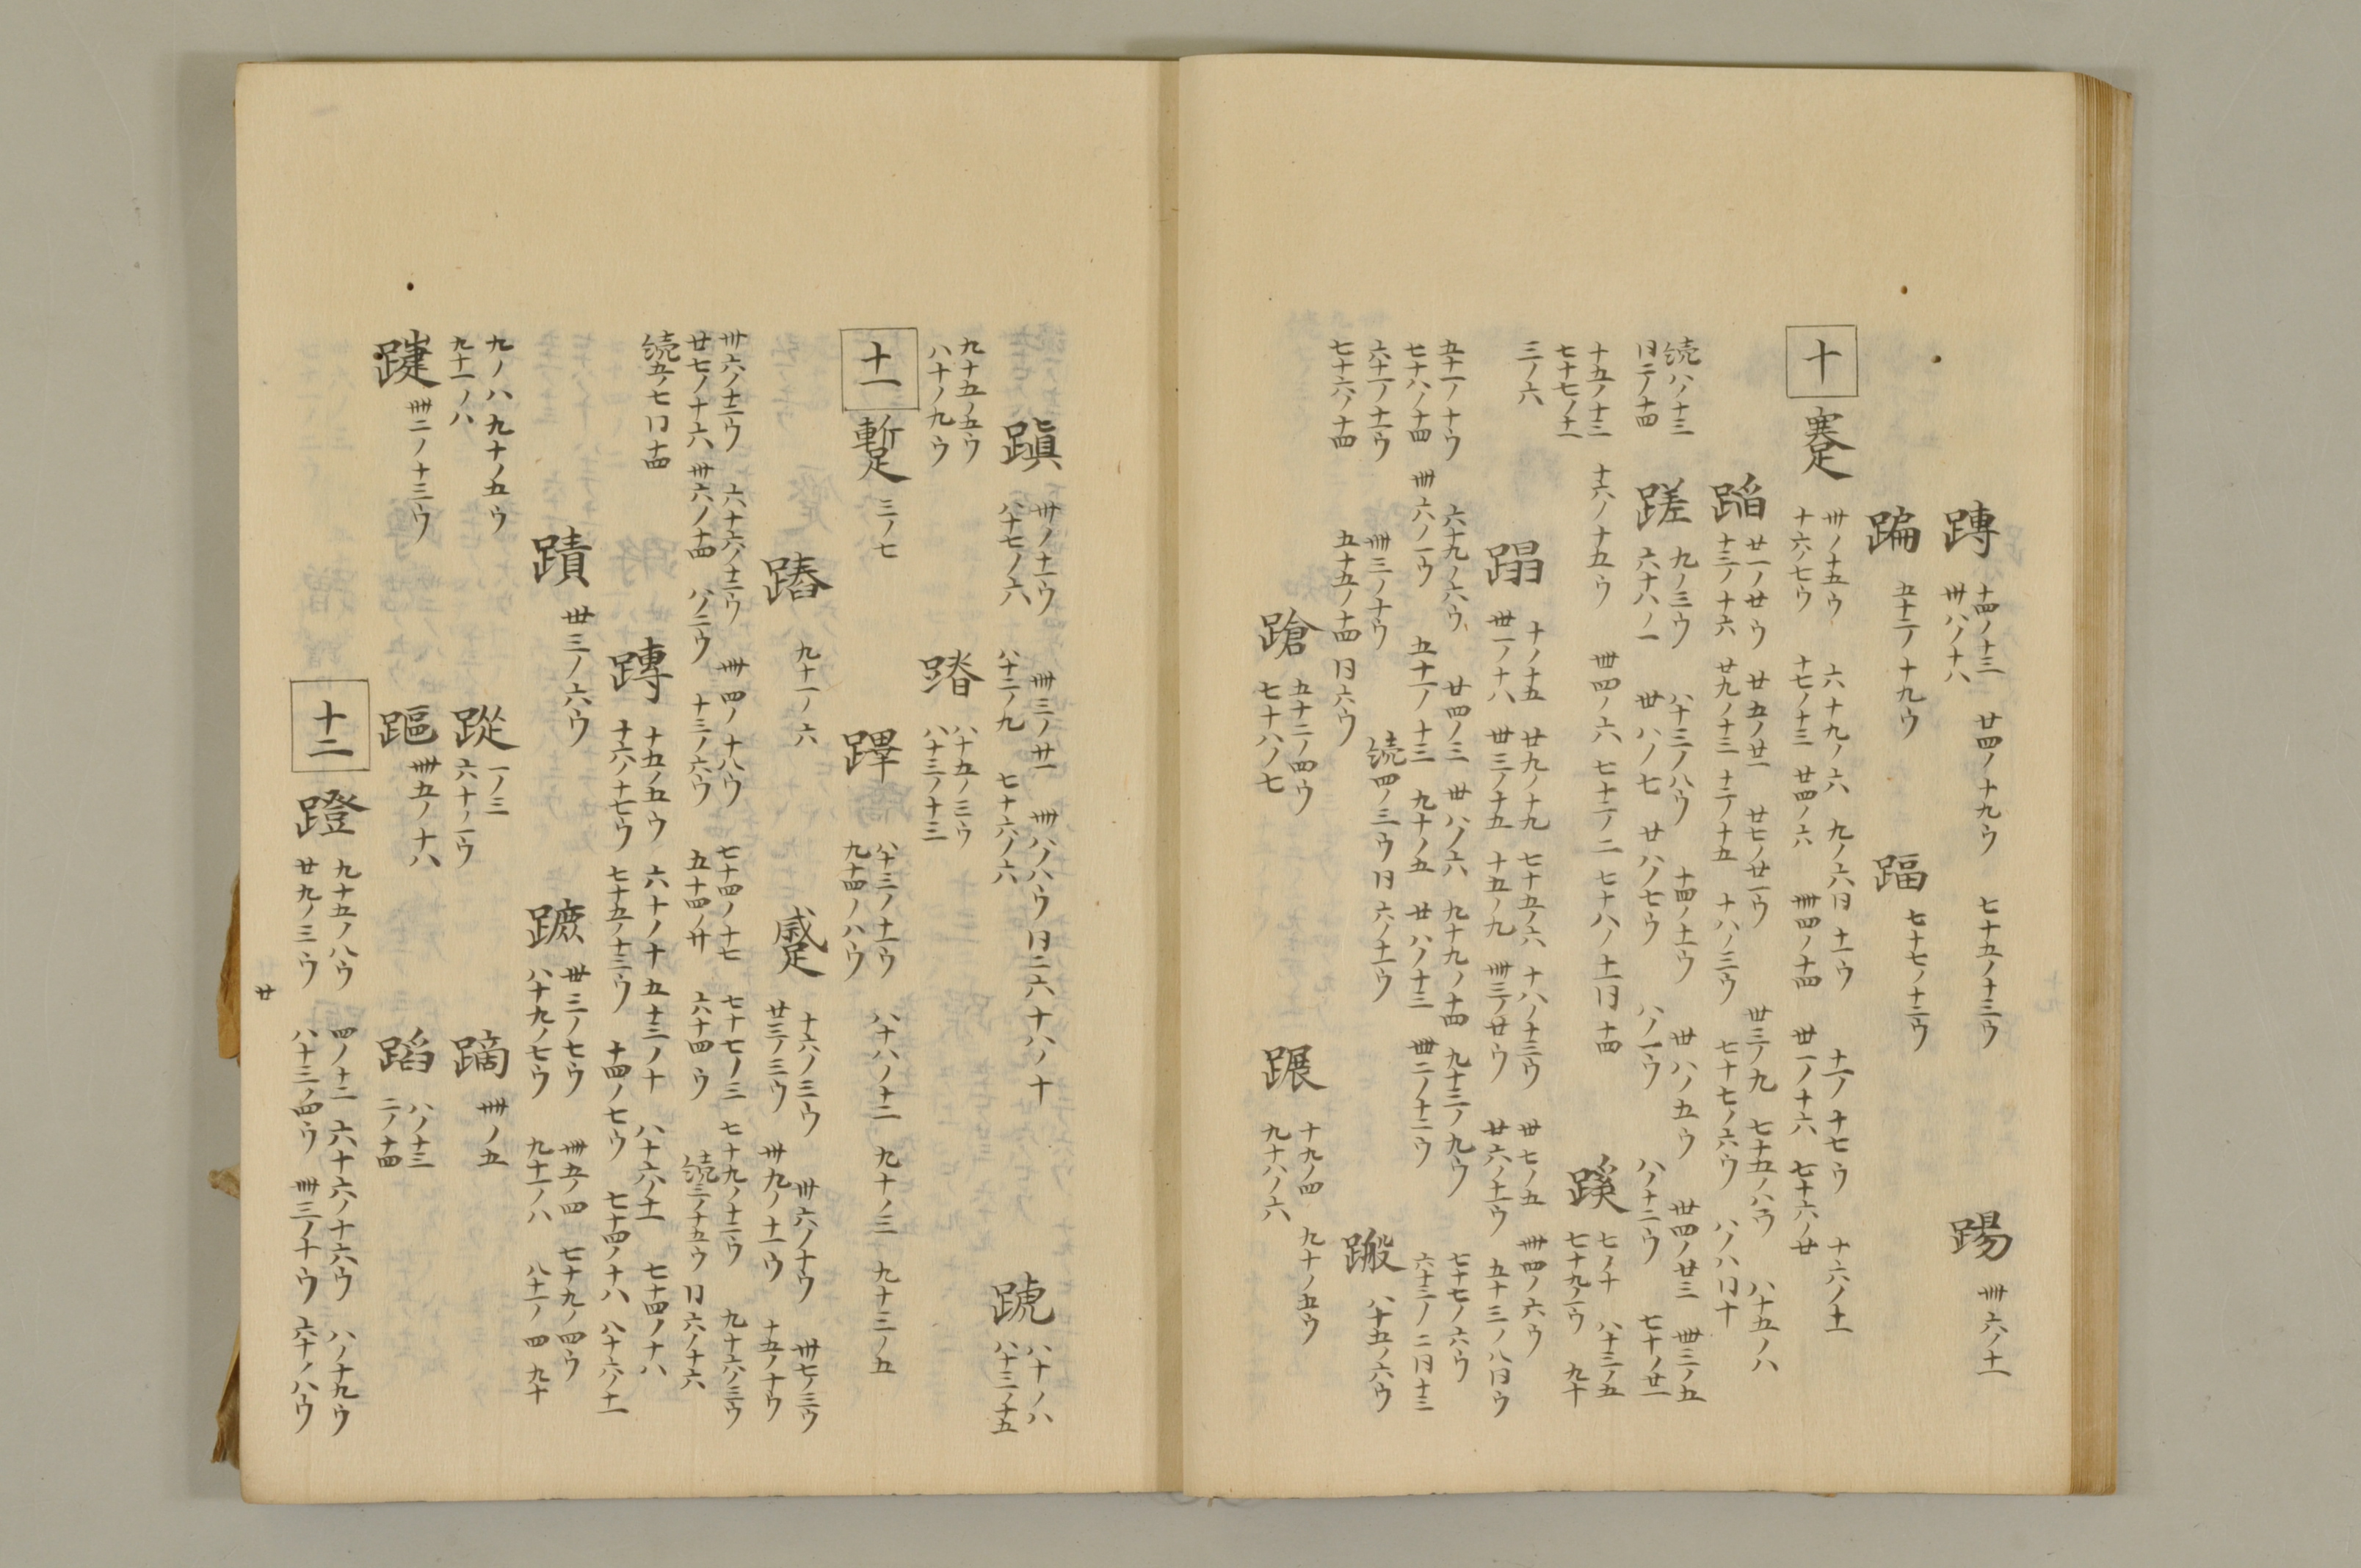 踳 十四ノ十三 廿四ノ十九ウ 七十五ノ十三ウ
卅八ノ十八
踼 卌六ノ十一
蹁 五十二ノ十九ウ 踾 七十七ノ十二ウ
十 蹇
卅ノ十五ウ 六十九ノ六 九ノ六 日 十一ウ 十一ノ十七ウ 十六ノ十一
十六ノ七ウ 十七ノ十三 廿四ノ六 卌四ノ十四 卅一ノ十六 七十六ノ廿
蹈 廿一ノ廿ウ 廿五ノ廿 廿七ノ廿一ウ 卅三ノ九 七十五ノ八ウ 八十五ノ八
十三ノ十六 廿九ノ十三 十二ノ十五 十八ノ三ウ 七十七ノ六ウ 八ノ八 日十
続八ノ十三
日二ノ十四
蹉 九ノ三ウ 八十三ノ八ウ 十四ノ十一ウ 卅八ノ五ウ 卅四ノ廿三 卌三ノ五
六十八ノ一 卅八ノ七 廿八ノ七ウ 八ノ一ウ 八ノ十二ウ 七十ノ廿一
十五ノ十三 十六ノ十五ウ 卌四ノ六 七十二ノ二 七十八ノ十一 日十四
七十七ノ十一
蹊 七ノ十 八十三ノ五
七十九ノ一ウ 九十
三ノ六
蹋 十ノ十五 廿九ノ十九 七十五ノ六 十八ノ十三ウ 卅七ノ五 卌四ノ六ウ
卅一ノ十八 卅三ノ十五 十五ノ九 卌三ノ廿ウ 廿六ノ十一ウ 五十三ノ八 日ウ
五十一ノ十ウ 六十九ノ六ウ 廿四ノ三 卅八ノ六 九十九ノ十四 九十三ノ九ウ 七十七ノ六ウ
七十八ノ十四 卌六ノ一ウ 五十一ノ十三 九十ノ五 廿八ノ十三 卌二ノ十二ウ 六十三ノ二 日十三
六十一ノ十一ウ 卌三ノ十ウ 続四ノ三ウ 日六ノ十一ウ
七十六ノ十四 五十五ノ十四 日六ウ
蹣 八十五ノ六ウ
蹌 五十二ノ四ウ
七十八ノ七
蹍 十九ノ四 九十ノ五ウ
九十八ノ六
蹎 卅ノ十一ウ 卌三ノ廿 卌八ノ八ウ 日二六 十八ノ十
八十七ノ六 八十二ノ九 七十六ノ六
蹏 八十ノ八
八十三ノ十五
九十五ノ五ウ
八十ノ九ウ
蹐 八十五ノ三ウ
八十三ノ十三
十一 蹔 三ノ七
蹕 八十三ノ十一ウ 八十八ノ十二 九十ノ三 九十三ノ五
九十四ノ八ウ
蹖 九十一ノ六
蹙 十六ノ三ウ 卌六ノ十ウ 卅七ノ三ウ
廿三ノ三ウ 卅九ノ十一ウ 十五ノ十ウ
卅六ノ十二ウ 六十六ノ十二ウ 卌四ノ十八ウ 七十四ノ十七 七十七ノ三 七十九ノ十二ウ 九十六ノ三ウ
廿七ノ十六 卅六ノ十四 八ノ二ウ 十三ノ六ウ 五十四ノ廾 六十四ウ 続三ノ十五ウ 日六ノ十六
続五ノ七 日十四
蹲 十五ノ五ウ 六十ノ十 五十三ノ十 八十六ノ十一 七十四ノ十八
十六ノ十七ウ 七十五ノ十三ウ 十四ノ七ウ 七十四ノ十八 八十六ノ十一
蹟 卅三ノ六ウ
蹠 卅三ノ七ウ 卌五ノ四 七十九ノ四ウ
八十九ノ七ウ 九十一ノ八 八十一ノ四 九十
九ノ八 九十ノ五ウ
九十一ノ八
蹤 一ノ三
六十ノ一ウ
蹢 卌ノ五
踺 卌二ノ十三ウ
䠔 卌五ノ十八
蹈 八ノ十三
二ノ十四
十二 蹬
九十五ノ八ウ 四ノ十二 六十六ノ十六ウ 八ノ十九ウ
廿九ノ三ウ 八十三ノ四ウ 卌三ノ十ウ 六十ノ八ウ
廿